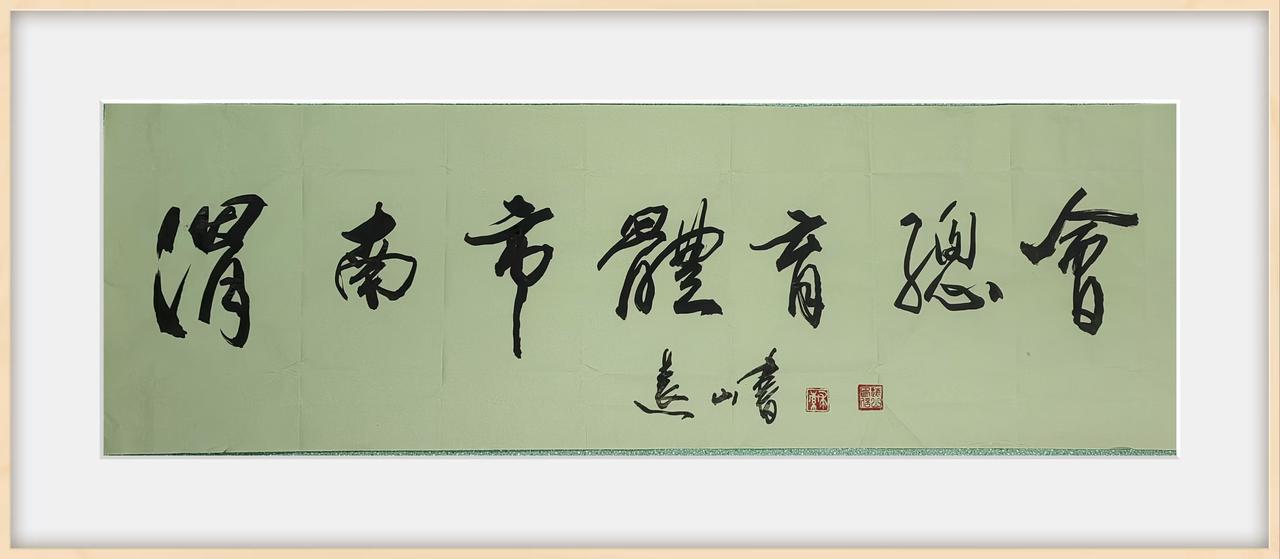 渭南市體育總會
遠山書